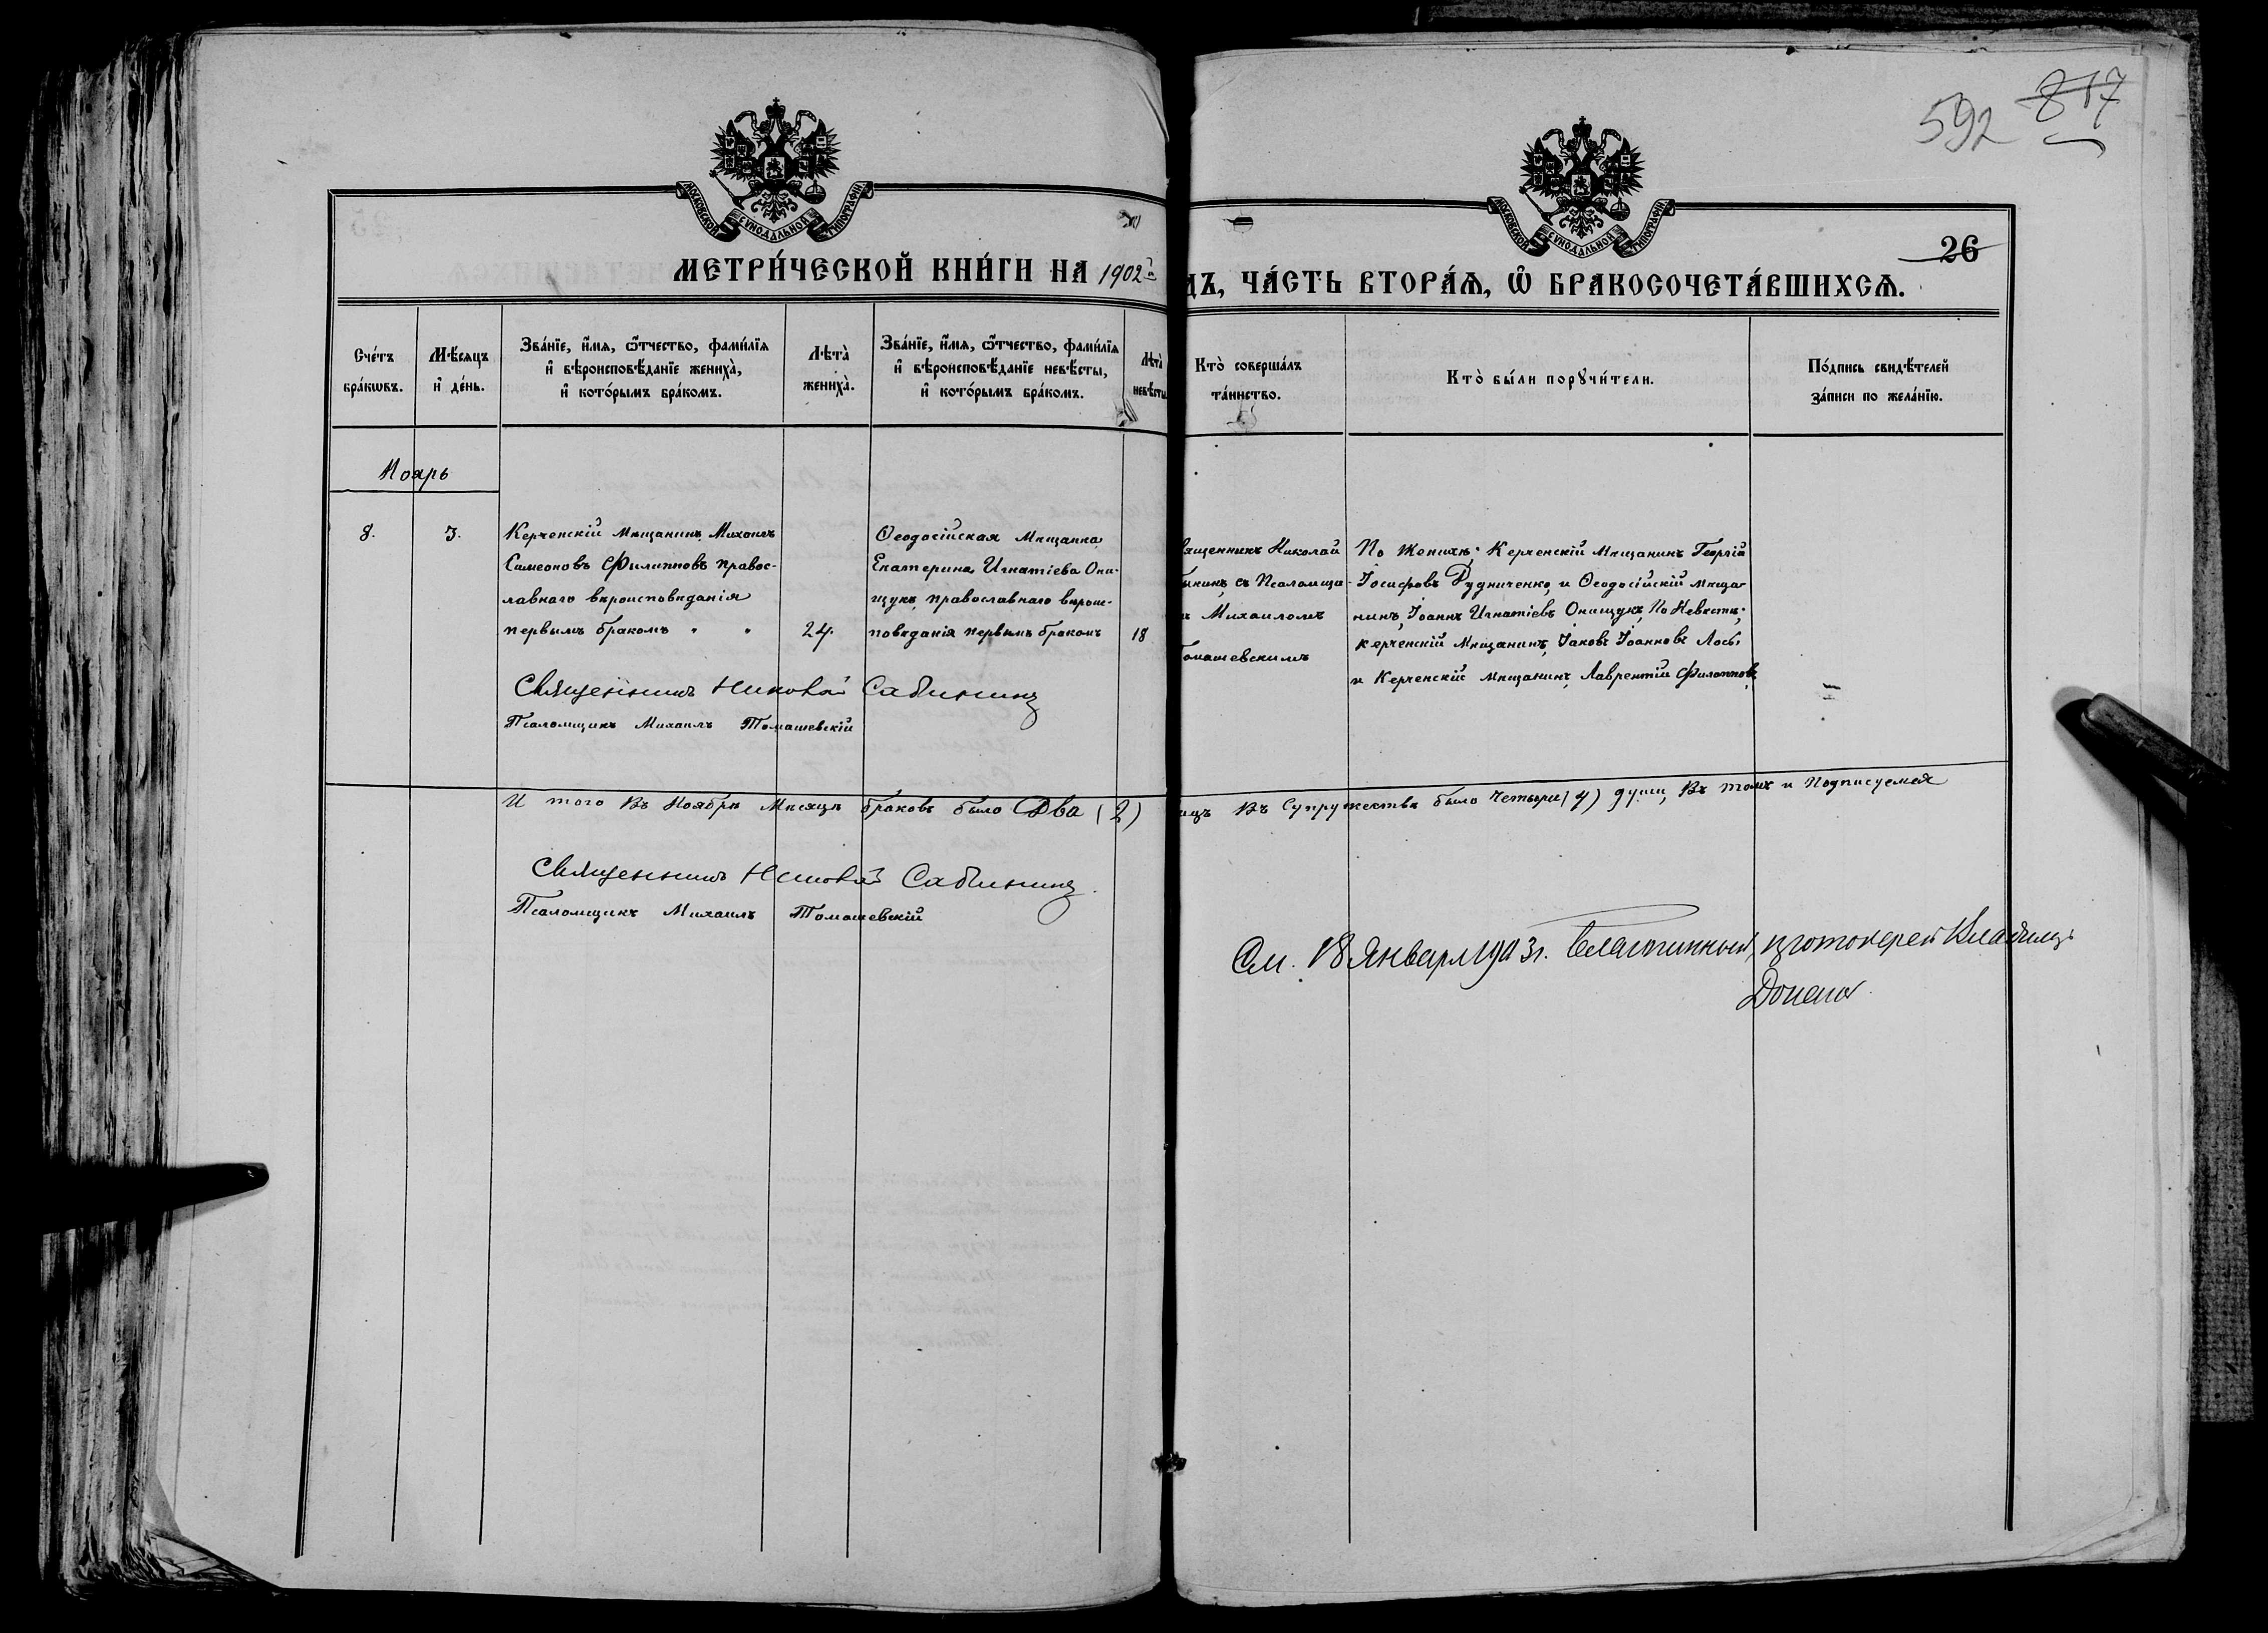 592 817
МОСКОВСКОЙ СѴНОДАЛЬНОЙ ТИПОГРАФІИ
МОСКОВСКОЙ СѴНОДАЛЬНОЙ ТИПОГРАФІИ
26
МЕТРИ́ЧЕСКОЙ КНИ́ГИ НА 1902
ДЪ, ЧА́СТЬ ВТОРА́Ѧ, Ѽ БРАКОСОЧЕТА́ВШИХСѦ.
Сче́тъ
бра́кѡвъ.
Мѣ́сѧцъ
и҆ де́нь.
Зва́нїе, и҆́мѧ, ѻ҆́тчество, фами́лїѧ
и҆ вѣроисповѣ́данїе жениха̀,
и҆ кото́рымъ бра́комъ.
Лѣта̀
жениха̀.
Зва́нїе, и҆́мѧ, ѻ҆́тчество, фами́лїѧ
и҆ вѣроисповѣ́данїе невѣ́сты,
и҆ кото́рымъ бра́комъ.
Лѣта̀
невѣ́сты
Кто̀ соверша́лъ
та́инство.
Кто̀ бы́ли порꙋчи́тели.
По́дпись свидѣ́телей
за́писи по жела́нїю.
Ноярь
8.
3.
Керченскій Мѣщанинъ Михаилъ
Симеоновъ Филипповъ правос-
лавнаго вѣроисповѣданія
первымъ бракомъ " "
24.
Ѳеодосійская Мѣщанка
Екатерина Игнатіева Они-
щукъ, православнаго вѣроис-
повѣданія первымъ бракомъ
18
вященникъ Николай
бининъ съ Псаломщи-
ъ Михаиломъ
омашевскимъ
По Женихѣ: Керченскій Мѣщанинъ Георгій
Іосифовъ Рудниченко, и Ѳеодосійскій мѣща-
нинъ, Іоаннъ Игнатіевъ Онищукъ, По Невѣстѣ:
Керченскій Мѣщанинъ, Іаковъ Іоанновъ Лось,
и Керченскій мѣщанинъ Лаврентій Филипповъ
Священникъ Николай Сабининъ
Псаломщикъ Михаилъ Томашевскій
И того Въ Ноябрѣ Мѣсяцѣ браковъ было Два (2)
ицъ Въ Супружествѣ было Четыри (4) души, Въ томъ и Подписуемся
Священникъ Николай Сабининъ.
Псаломщикъ Михаилъ Томашевскій
См. 18 Января 1903 г. Благочинный, протоіерей Владимір